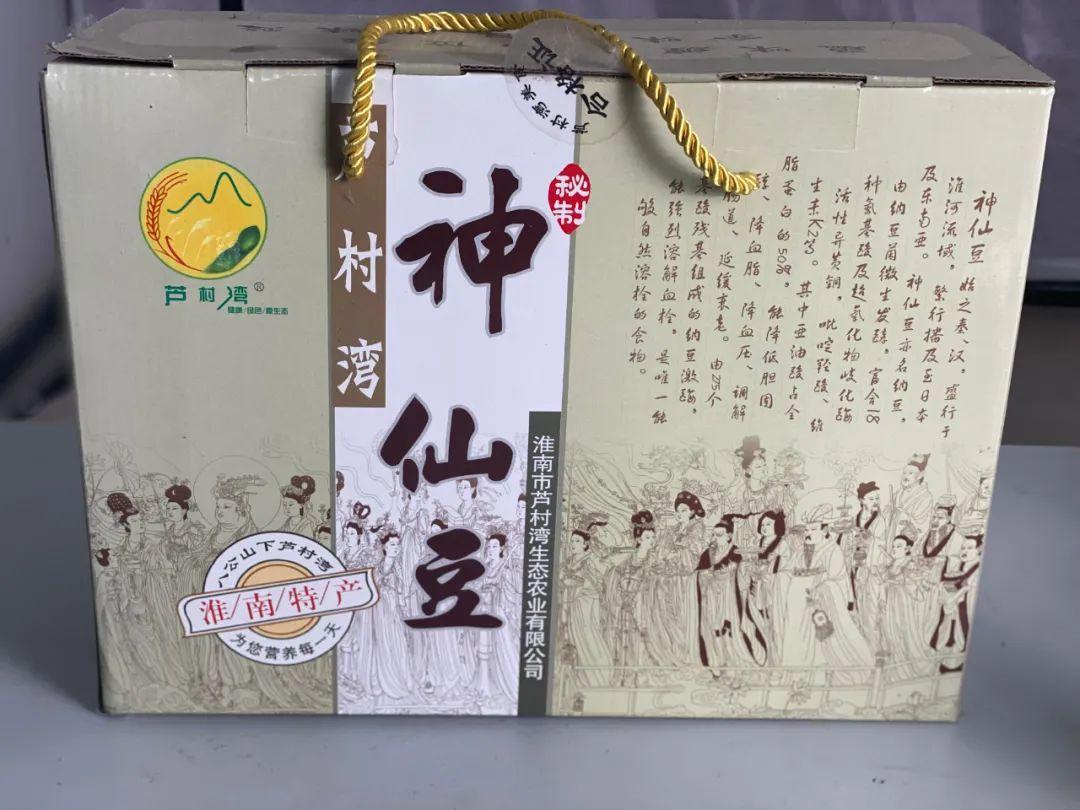 芦村湾®
健康/绿色/原生态
村湾
神仙豆
秘制
合格证
淮南市芦村湾生态农业有限公司
八公山下芦村湾
淮/南/特/产
为您营养每一天
神仙豆 始之秦、汉，盛行于
淮河流域，繁行播及至日本
及东南亚。神仙豆亦名纳豆，
由纳豆菌微生发酵，富含18
种氨基酸及超氧化物歧化酶
活性异黄铜，吡啶羟酸、维
生素K2等。其中亚油酸占全
脂蛋白的50%，能降低胆固
醇、降血脂、降血压、调解
肠道、延缓衰老。由275个
基酸残基组成的纳豆激酶，
能强列溶解血栓，是唯一能
够自然溶栓的食物。